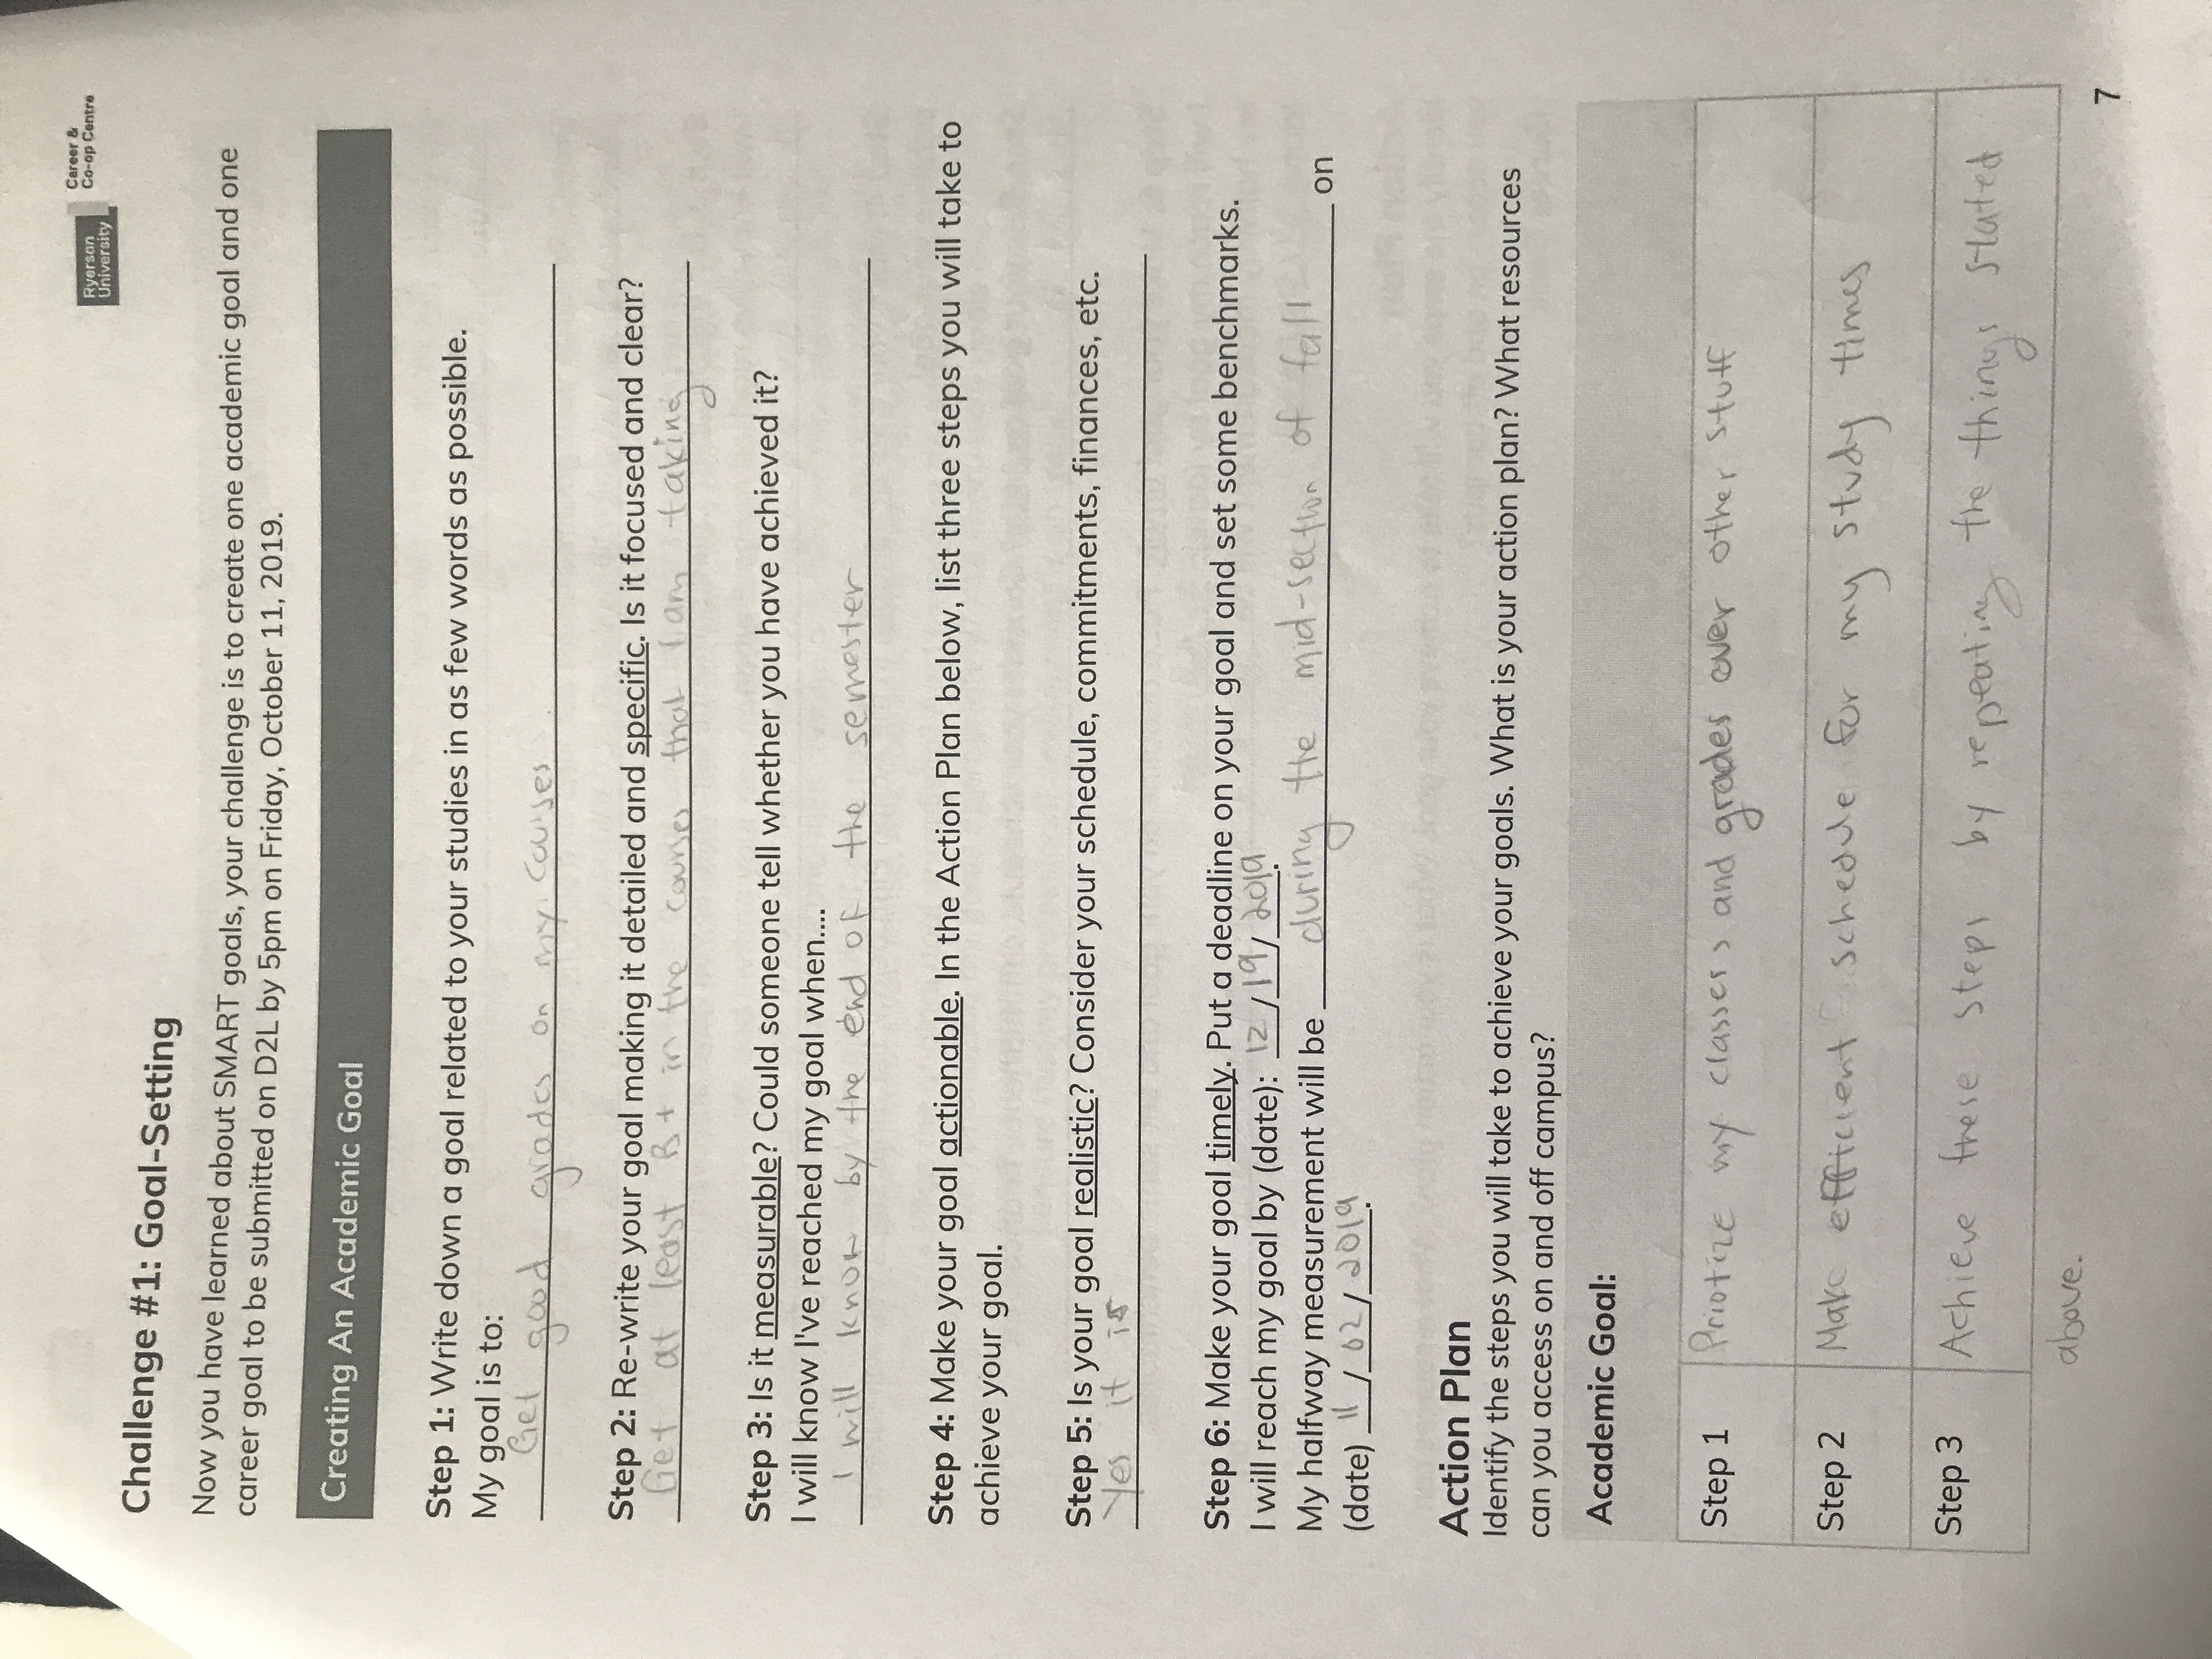 Ryerson
University
Career &
Co-op Centre
Challenge #1: Goal-Setting
Now you have learned about SMART goals, your challenge is to create one academic goal and one
career goal to be submitted on D2L by 5pm on Friday, October 11, 2019.
Creating An Academic Goal
Step 1: Write down a goal related to your studies in as few words as possible.
My goal is to:
Get good grades on my courses
Step 2: Re-write your goal making it detailed and specific. Is it focused and clear?
Get at least B+ in the courses that I am taking
Step 3: Is it measurable? Could someone tell whether you have achieved it?
I will know I've reached my goal when....
I will know by the end of the semester
Step 4: Make your goal actionable. In the Action Plan below, list three steps you will take to
achieve your goal.
Step 5: Is your goal realistic? Consider your schedule, commitments, finances, etc.
Yes it is
Step 6: Make your goal timely. Put a deadline on your goal and set some benchmarks.
I will reach my goal by (date): 12/19/2019.
My halfway measurement will be during the mid-section of fall on
(date) 11/02/2019.
Action Plan
Identify the steps you will take to achieve your goals. What is your action plan? What resources
can you access on and off campus?
Academic Goal:
Step 1 Priotize my classes, and grades over other stuff
Step 2 Make efficient schedule for my study times
Step 3 Achieve these steps by repeating the things stated
above.
7